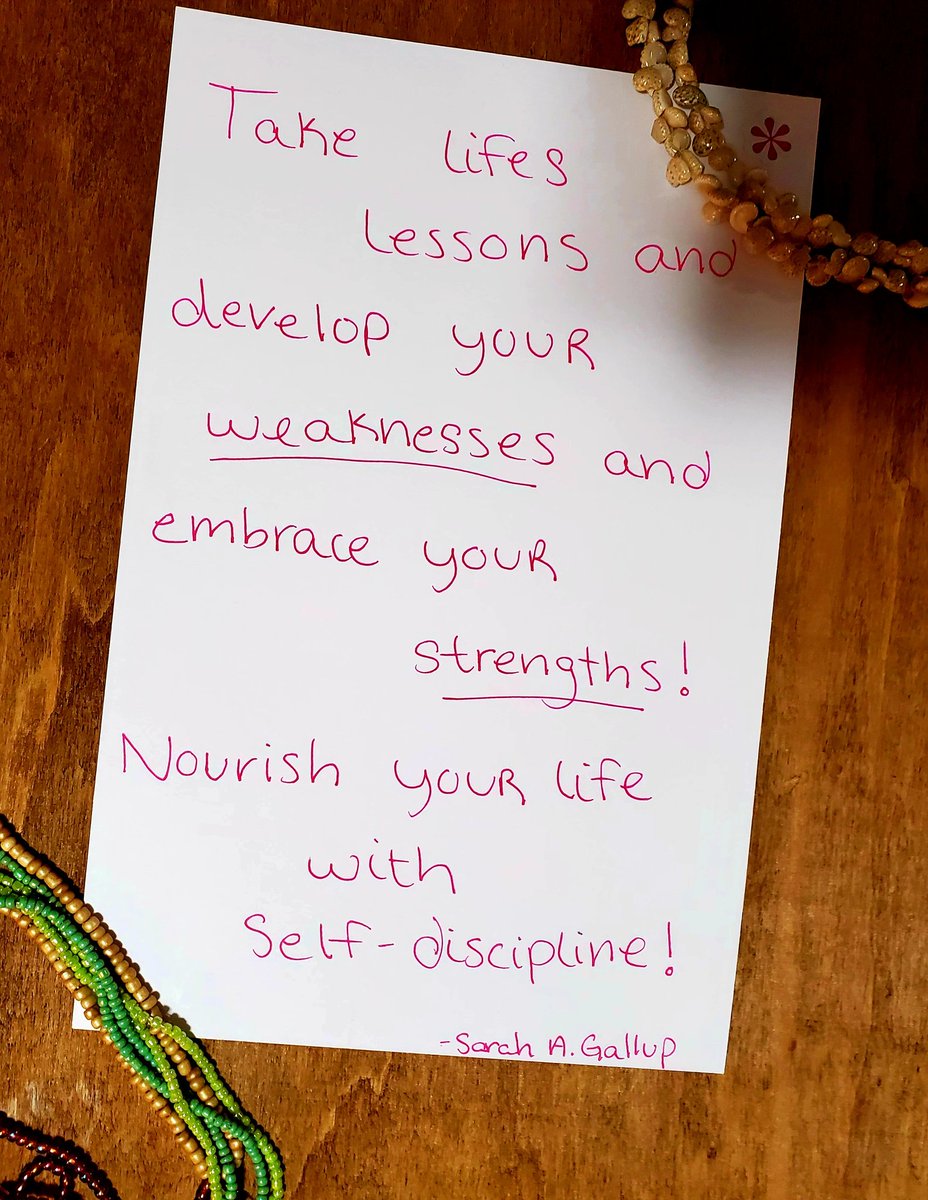 Take lifes
lessons and
develop your
weaknesses and
embrace your
strengths!
Nourish your life
with
Self-discipline!
-Sarah A. Gallup